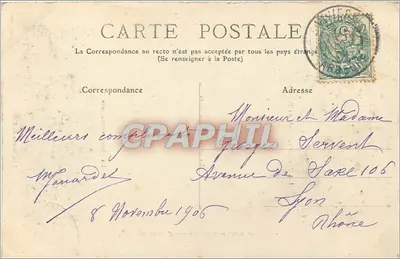 CARTE POSTALE
La Correspondance au recto n'est pas acceptée par tous les pays étrang
(Se renseigner à la Poste)
Correspondance
Adresse
Meilleurs compliments
8 Novembre 1906
Monsieur et Madame
Servent
Avenue de Saxe 106
Lyon
Rhône
CPAPHIL